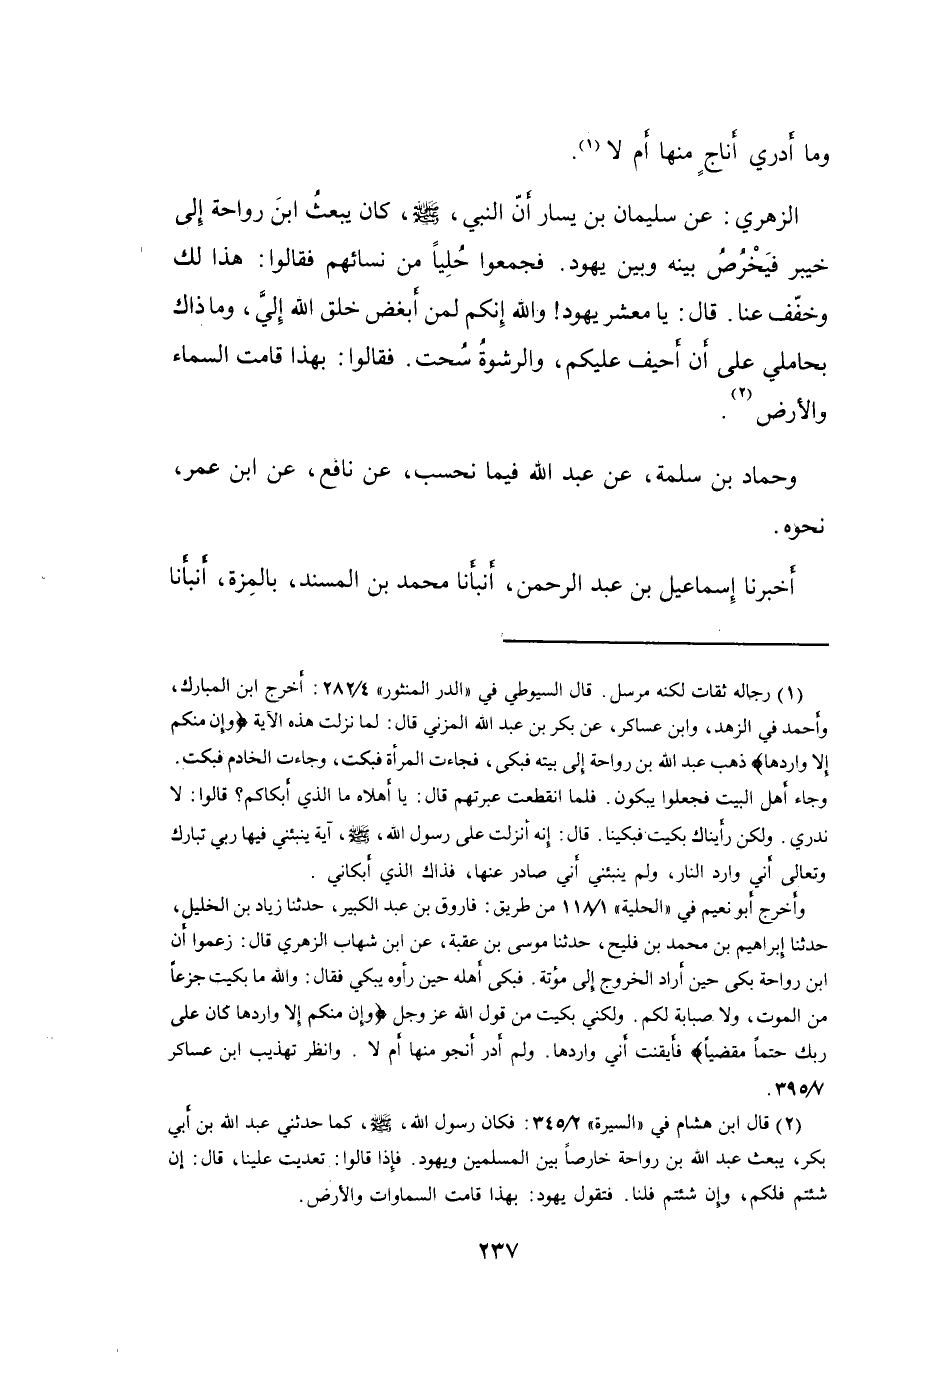 وما أَدري أَناجٍ منها أَم لا (١).
الزهري : عن سليمان بن يسار أَنّ النبي ، ﷺ ، كان يبعثُ ابنَ رواحة إِلى
خيبر فيَخْرُصُ بينه وبين يهود. فجمعوا حُلِياً من نسائهم فقالوا : هذا لك
وخفّف عنا. قال : يا معشر يهود! والله إِنكم لمن أَبغض خلق الله إِليَّ ، وما ذاك
بحاملي على أَن أَحيف عليكم ، والرشوةُ سُحت. فقالوا : بهذا قامت السماء
والأرض (٢) .
وحماد بن سلمة ، عن عبد الله فيما نحسب ، عن نافع ، عن ابن عمر ،
نحوه .
أَخبرنا إِسماعيل بن عبد الرحمن ، أَنبأَنا محمد بن المسند ، بالمِزة ، أَنبأَنا
(١) رجاله ثقات لكنه مرسل . قال السيوطي في «الدر المنثور» ٢٨٢/٤ : أَخرج ابن المبارك ،
وأَحمد في الزهد ، وابن عساكر ، عن بكر بن عبد الله المزني قال : لما نزلت هذه الآية ﴿وإِن منكم
إِلا واردها﴾ ذهب عبد الله بن رواحة إِلى بيته فبكى ، فجاءت المرأة فبكت ، وجاءت الخادم فبكت .
وجاء أَهل البيت فجعلوا يبكون . فلما انقطعت عبرتهم قال : يا أَهلاه ما الذي أَبكاكم؟ قالوا : لا
ندري . ولكن رأَيناك بكيت فبكينا . قال : إِنه أنزلت على رسول الله ، ﷺ ، آية ينبئني فيها ربي تبارك
وتعالى أَني وارد النار ، ولم ينبئني أَني صادر عنها ، فذاك الذي أَبكاني .
وأَخرج أَبو نعيم في «الحلية» ١١٨/١ من طريق : فاروق بن عبد الكبير ، حدثنا زياد بن الخليل ،
حدثنا إِبراهيم بن محمد بن فليح ، حدثنا موسى بن عقبة ، عن ابن شهاب الزهري قال : زعموا أَن
ابن رواحة بكى حين أَراد الخروج إِلى مؤتة . فبكى أَهله حين رأَوه يبكي فقال : والله ما بكيت جزعاً
من الموت ، ولا صبابة لكم . ولكني بكيت من قول الله عز وجل ﴿وإِن منكم إِلا واردها كان على
ربك حتماً مقضياً﴾ فأَيقنت أَني واردها . ولم أَدر أَنجو منها أَم لا . وانظر تهذيب ابن عساكر
٣٩٥/٧ .
(٢) قال ابن هشام في «السيرة» ٣٤٥/٢ : فكان رسول الله ، ﷺ ، كما حدثني عبد الله بن أَبي
بكر ، يبعث عبد الله بن رواحة خارصاً بين المسلمين ويهود . فإِذا قالوا : تعديت علينا ، قال : إِن
شئتم فلكم ، وإِن شئتم فلنا . فتقول يهود : بهذا قامت السماوات والأَرض .
٢٣٧